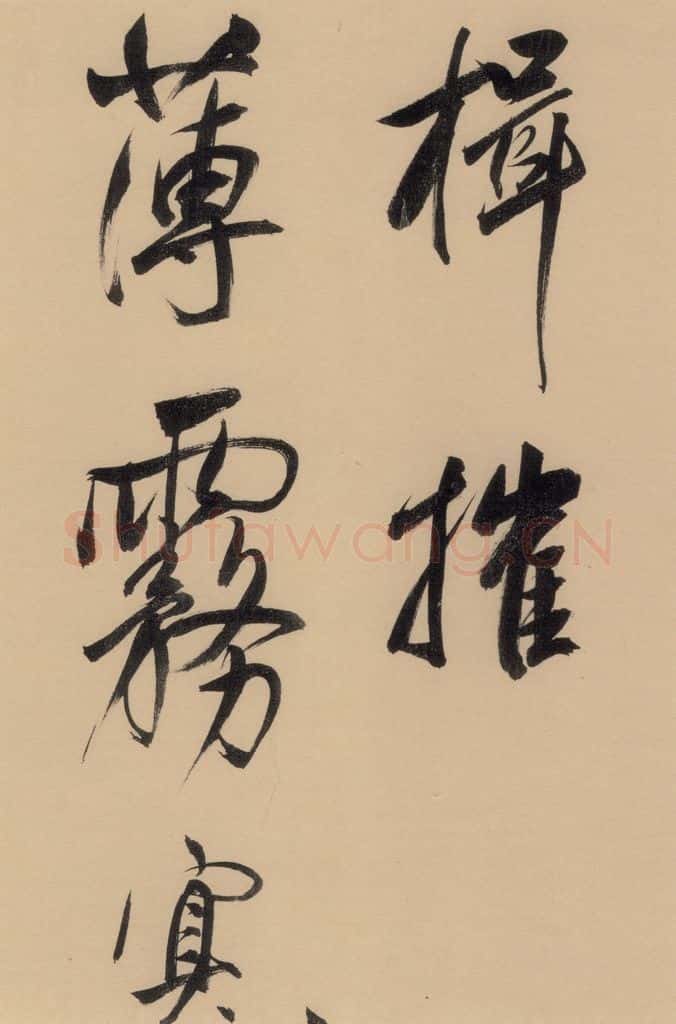 楫摧
薄霧冥
Shufawang.CN